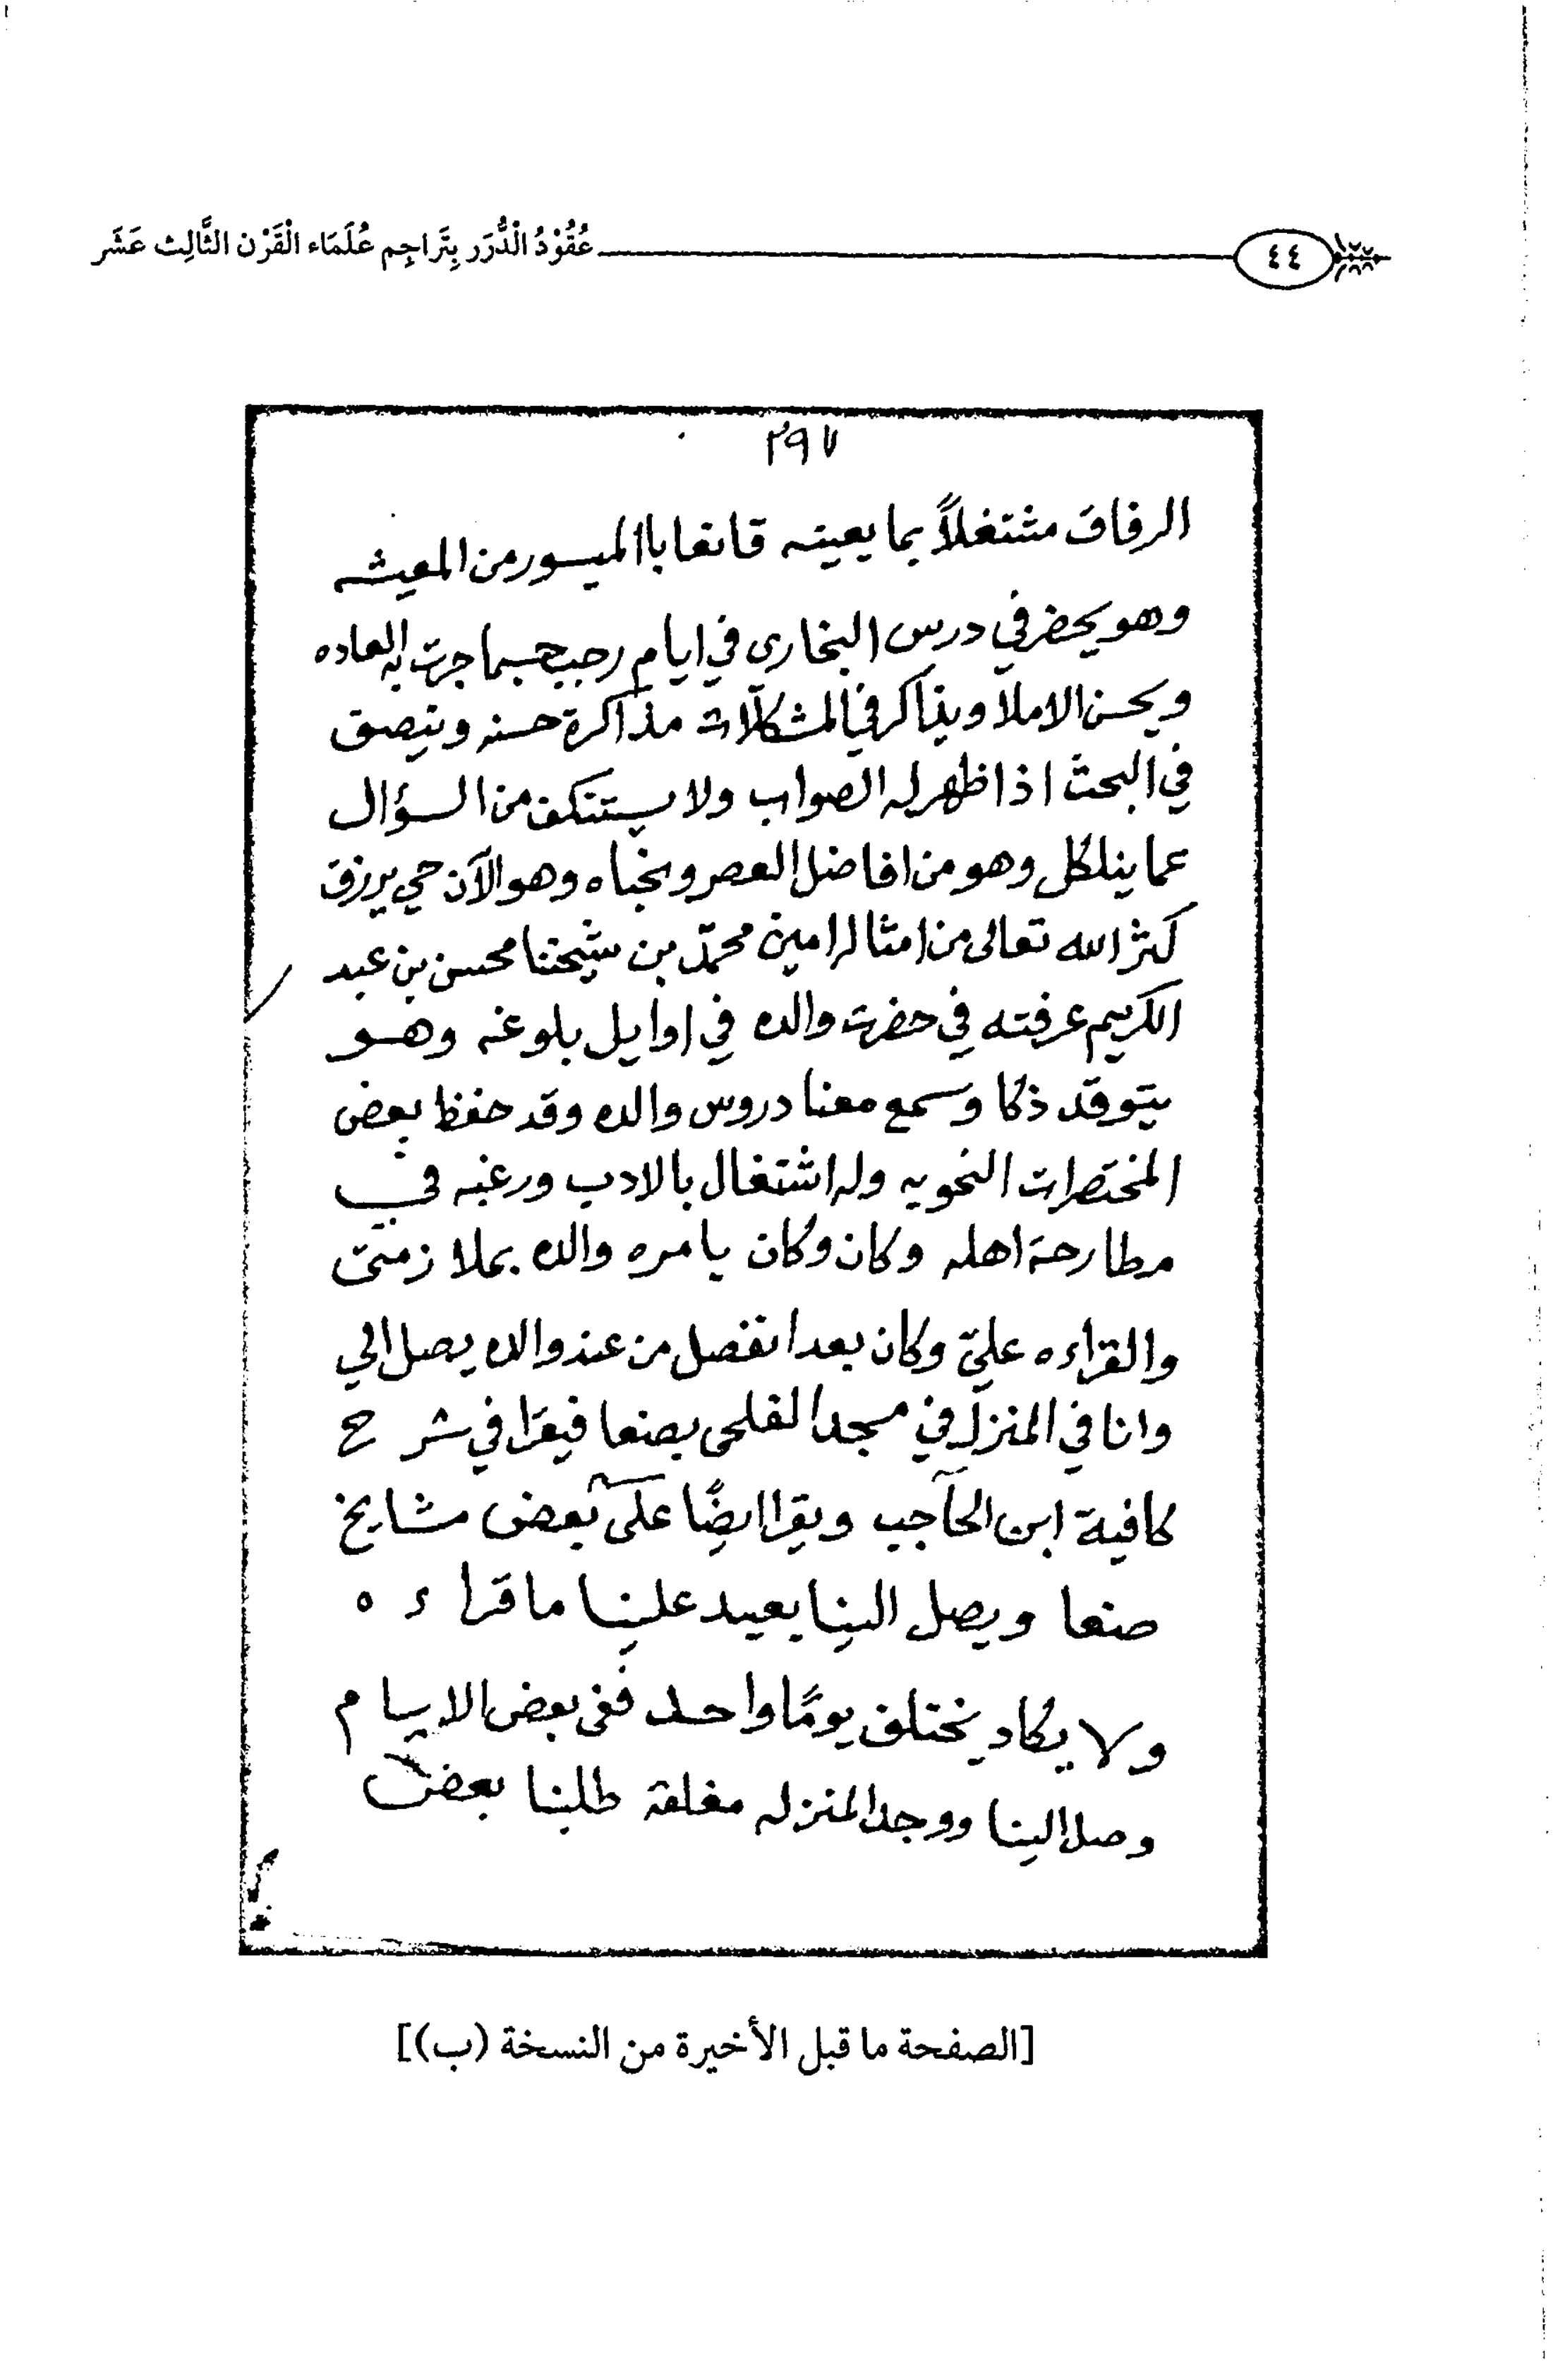 ٤٤ عُقُوْدُ الْدُّرَر بِتَرَاجِم عُلَمَاء الْقَرْن الثَّالِث عَشَر
٢٩٧
الرفاق مشتغلاً بما يعينه قانعا باالميسور من المعيشه
وهو يحضر في درس البخاري في ايام رجب حسبما جرت به العاده
ويحسن الاملا ويذاكر في المشكلات مذاكرة حسنه وينصف
في البحث اذا ظهر له الصواب ولا يستنكف من السؤال
عما يشكل وهو من افاضل العصر ونجباه وهو الآن حي يرزق
كثر الله تعالى من امثاله امين محمّد بن شيخنا محسن بن عبد
الكريم عرفته في حضرت والده في اوايل بلوغه وهو
يتوقد ذكا وسمع معنا دروس والده وقد حفظ بعض
المختصرات النحويه وله اشتغال بالادب ورغبه في
مطارحة اهله وكان وكان يامره والده بملازمتي
والقراءه عليّ وكان بعد انفصل من عند والده يصل الي
وانا في المنزله في مسجد الفليحى بصنعا فيقرا في شرح
كافية ابن الحاجب ويقرا ايضًا على بعض مشايخ
صنعا ويصل الينا يعيد علينا ما قراءه
ولا يكاد يختلف يومًا واحد ففي بعض الايام
وصل الينا ووجد المنزله مغلقة طلبنا بعض
[الصفحة ما قبل الأخيرة من النسخة (ب)]